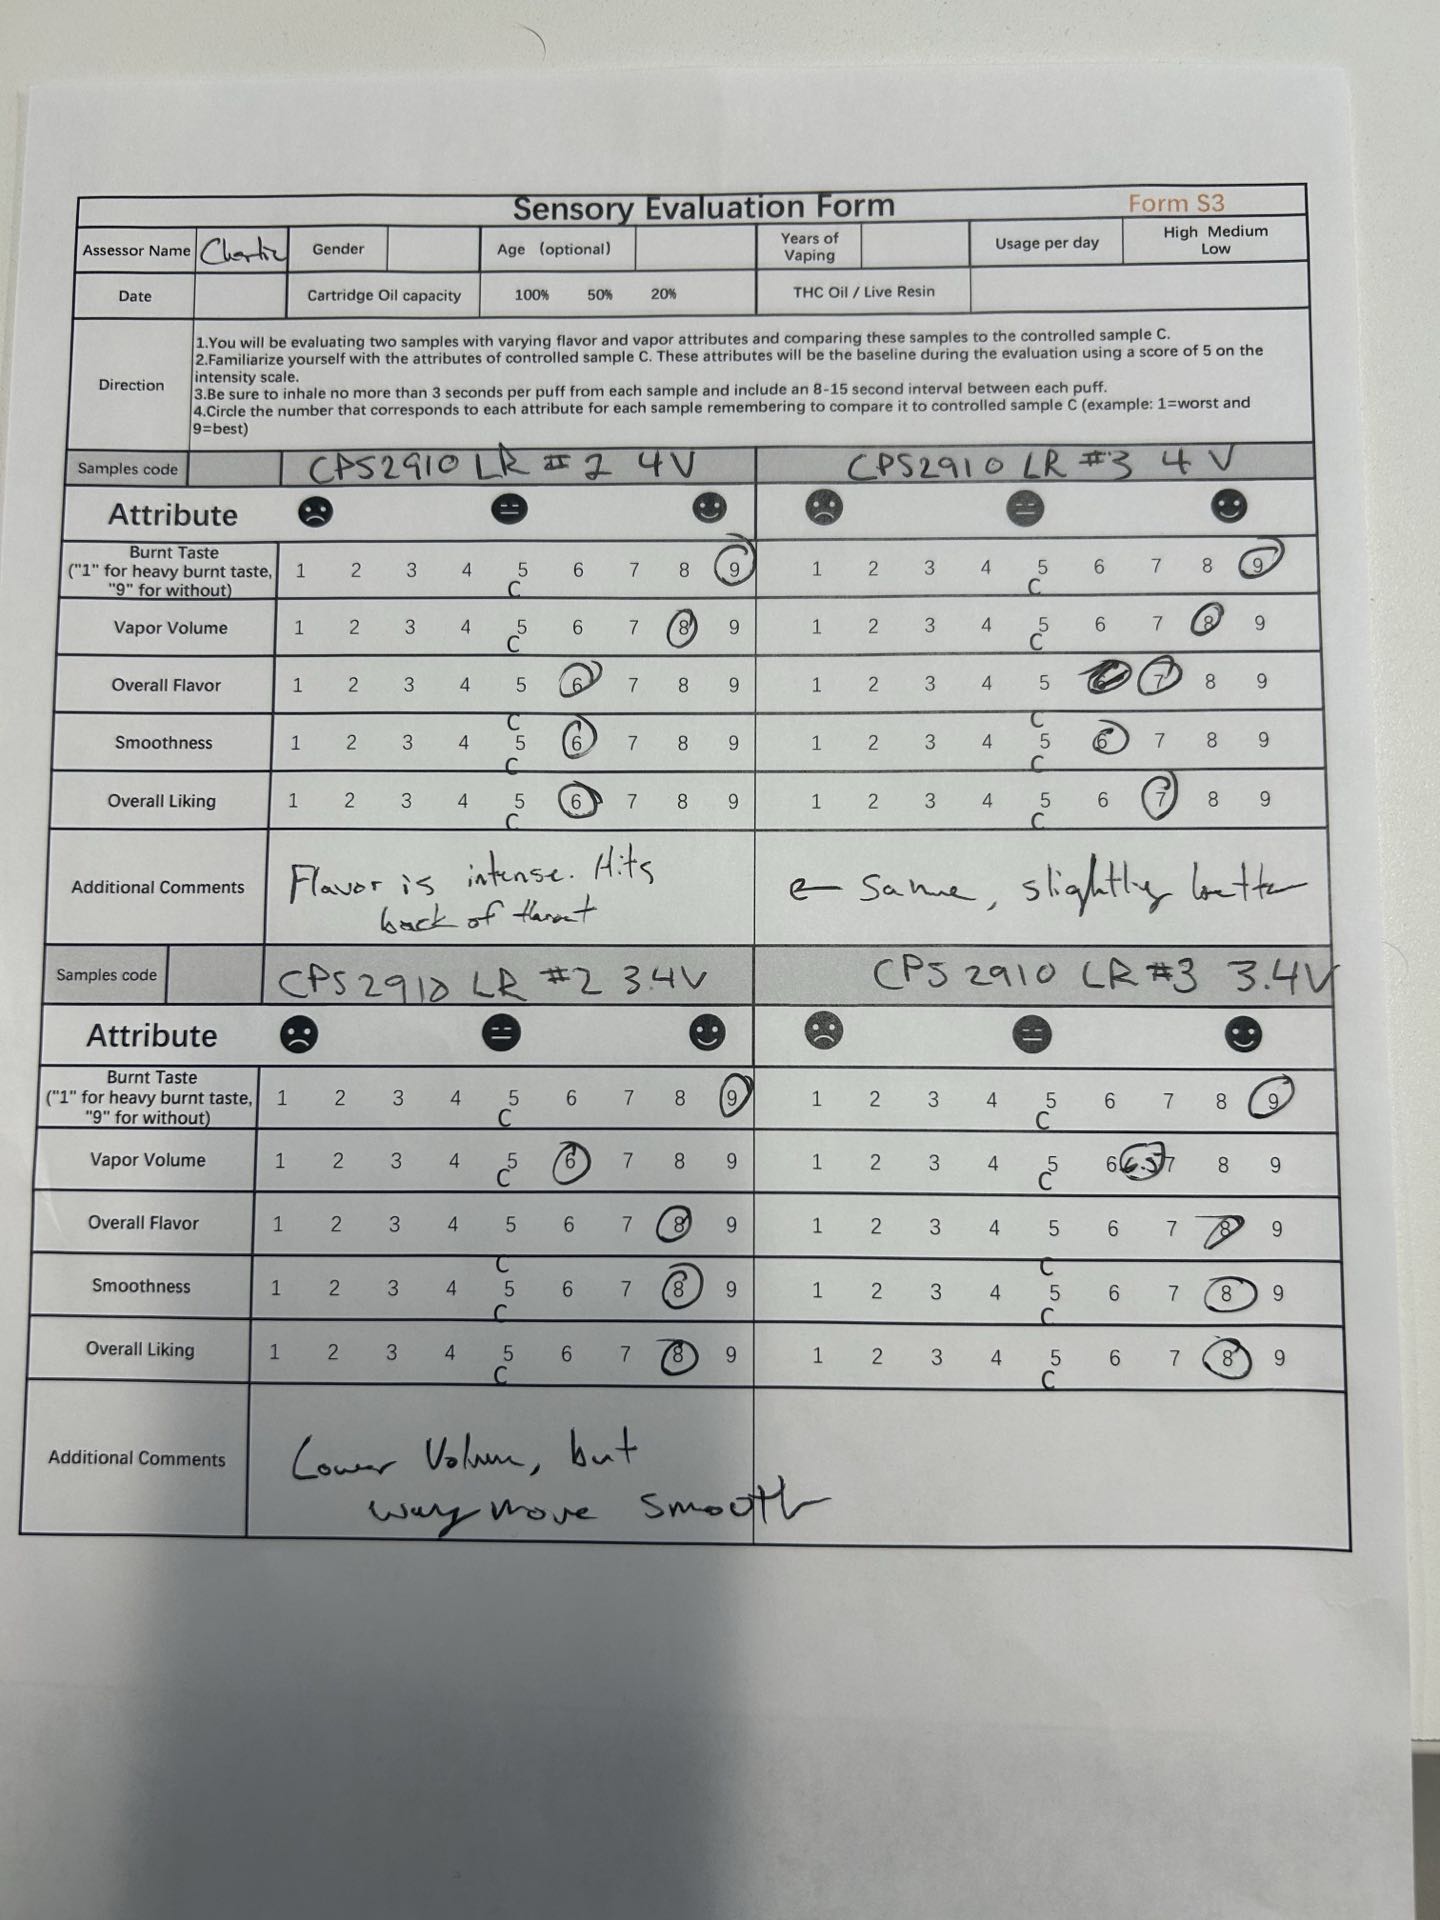 Sensory Evaluation Form Form S3
Assessor Name Charlie Gender Age (optional) Years of Vaping Usage per day High Medium Low
Date Cartridge Oil capacity 100% 50% 20% THC Oil / Live Resin
Direction
1.You will be evaluating two samples with varying flavor and vapor attributes and comparing these samples to the controlled sample C.
2.Familiarize yourself with the attributes of controlled sample C. These attributes will be the baseline during the evaluation using a score of 5 on the
intensity scale.
3.Be sure to inhale no more than 3 seconds per puff from each sample and include an 8-15 second interval between each puff.
4.Circle the number that corresponds to each attribute for each sample remembering to compare it to controlled sample C (example: 1=worst and
9=best)
Samples code CPS2910 LR #2 4V CPS2910 LR #3 4V
Attribute
Burnt Taste
("1" for heavy burnt taste,
"9" for without)
1 2 3 4 5 6 7 8 9 1 2 3 4 5 6 7 8 9
C C
Vapor Volume 1 2 3 4 5 6 7 8 9 1 2 3 4 5 6 7 8 9
C C
Overall Flavor 1 2 3 4 5 6 7 8 9 1 2 3 4 5 6 7 8 9
C C
Smoothness 1 2 3 4 5 6 7 8 9 1 2 3 4 5 6 7 8 9
C C
Overall Liking 1 2 3 4 5 6 7 8 9 1 2 3 4 5 6 7 8 9
C C
Additional Comments
Flavor is intense. Hits
back of throat
← Same, slightly better
Samples code CPS2910 LR #2 3.4V CPS2910 LR #3 3.4V
Attribute
Burnt Taste
("1" for heavy burnt taste,
"9" for without)
1 2 3 4 5 6 7 8 9 1 2 3 4 5 6 7 8 9
C C
Vapor Volume 1 2 3 4 5 6 7 8 9 1 2 3 4 5 6 6.5 7 8 9
C C
Overall Flavor 1 2 3 4 5 6 7 8 9 1 2 3 4 5 6 7 8 9
C C
Smoothness 1 2 3 4 5 6 7 8 9 1 2 3 4 5 6 7 8 9
C C
Overall Liking 1 2 3 4 5 6 7 8 9 1 2 3 4 5 6 7 8 9
C C
Additional Comments
Lower Volume, but
way more smooth